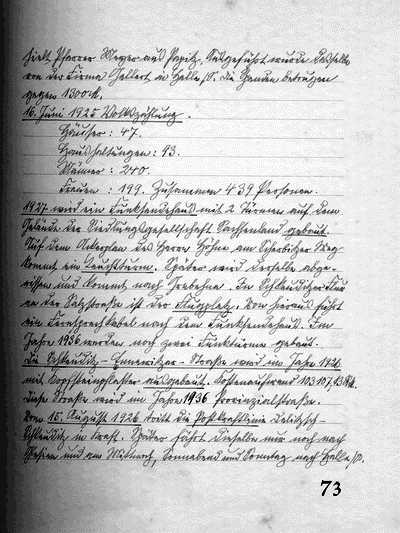 hielt Pfarrer Meyer aus Papitz. Ausgeführt wurde dasselbe
von der Firma Hellert in Halle/S. die Spenden betrugen
gegen 1300 M.
16. Juni 1925 Volkszählung.
Häuser: 47.
Haushaltungen: 93.
Männer: 240.
Frauen: 199. Zusammen 439 Personen.
1927 wird ein Funksendehaus mit 2 Türmen auf dem
Gelände der Siedlungsgesellschaft Sachsenland gebaut.
Auf dem Ackerplan des Herrn Höhne am Scherbitzer Weg
kommt ein Leuchtturm. Später wird derselbe abge-
rissen und kommt nach Grebehna. In Schkeuditzer Flur
an der Salzstraße ist der Flugplatz. Von hieraus führt
ein Fernsprechkabel nach dem Funksendehaus. Im
Jahre 1936 werden noch zwei Funktürme gebaut.
Die Schkeuditz-Ennewitzer-Straße wird im Jahre 1926
mit Kopfsteinpflaster ausgebaut. Kostenaufwand
Diese Straße wird im Jahre 1936 Provinzialstraße.
Vom 15. August 1926 tritt die Postkraftlinie Delitzsch-
Schkeuditz in Kraft. Später fährt dieselbe nur noch nach
und am Mittwoch, Sonnabend und Sonntag nach Halle/S.
73